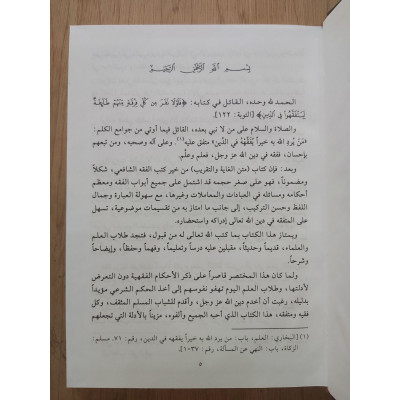 بسم الله الرحمن الرحيم
الحمد لله وحده، القائل في كتابه: ﴿فَلَوْلَا نَفَرَ مِن كُلِّ فِرْقَةٍ مِّنْهُمْ طَائِفَةٌ
لِّيَتَفَقَّهُوا فِي الدِّينِ﴾ [التوبة: ١٢٢].
والصلاة والسلام على من لا نبي بعده، القائل فيما أوتي من جوامع الكلم:
«مَنْ يُرِدِ الله به خيراً يُفَقِّهْهُ في الدِّين» متفق عليه(١)، وعلى آله وصحبه، ومن تبعهم
بإحسان، ففقه في دين الله عز وجل، فعلم وعلَّم.
وبعد: فإن كتاب (متن الغاية والتقريب) من خير كتب الفقه الشافعي، شكلاً
ومضموناً، فهو على صغر حجمه قد اشتمل على جميع أبواب الفقه ومعظم
أحكامه ومسائله في العبادات والمعاملات وغيرها، مع سهولة العبارة وجمال
اللفظ وحسن التركيب، إلى جانب ما امتاز به من تقسيمات موضوعية، تسهل
على المتفقه في دين الله تعالى إدراكه واستحضاره.
ويمتاز هذا الكتاب بما كتب الله تعالى له من قبول، فتجد طلاب العلم
والعلماء، قديماً وحديثاً، مقبلين عليه درساً وتعليماً، وفهماً وحفظاً، وإيضاحاً
وشرحاً.
ولما كان هذا المختصر قاصراً على ذكر الأحكام الفقهية دون التعرض
لأدلتها، وطلاب العلم اليوم تهفو نفوسهم إلى أخذ الحكم الشرعي مؤيداً
بدليله، رغبت أن أخدم دين الله عز وجل، وأقدم للشباب المسلم المثقف، وكل
فقيه ومتفقه، هذا الكتاب الذي أحبه الجميع وألفوه، مزيناً بالأدلة التي تجعلهم
(١) البخاري: العلم، باب: من يرد الله به خيراً يفقهه في الدين، رقم: ٧١. مسلم:
الزكاة، باب: النهي عن المسألة، رقم: ١٠٣٧].
٥